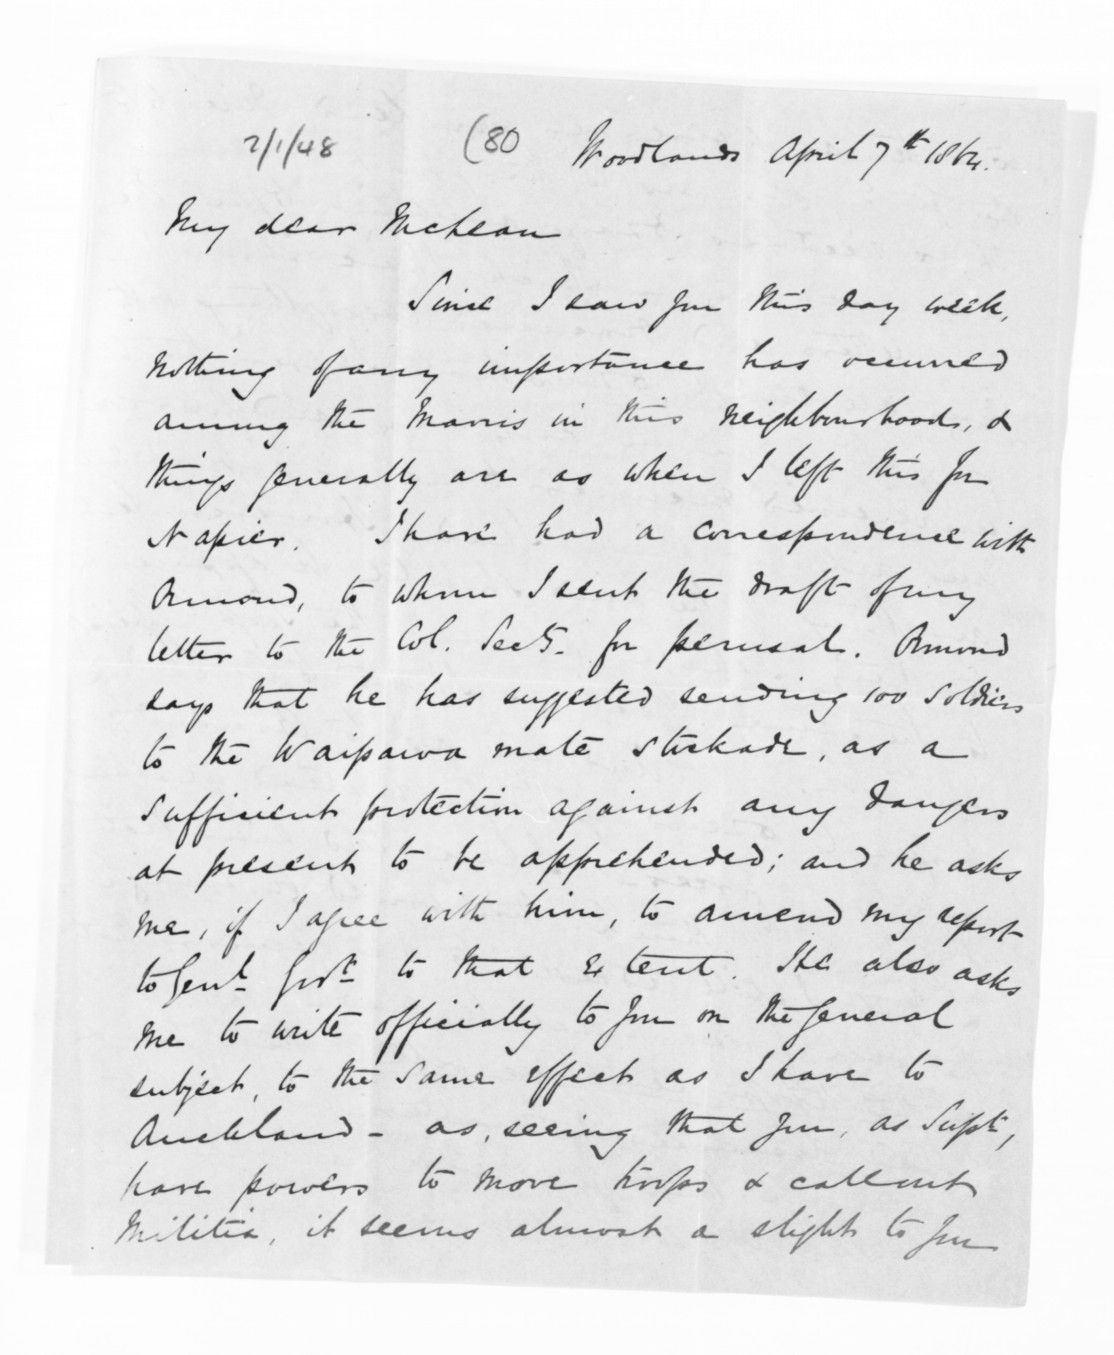 2/1/48 (80 Woodlands April 7th 1864.
My dear McLean
Since I saw you this day week,
nothing of any importance has occurred
among the Maoris in this neighbourhood, &
things generally are as when I left this for
Napier. I have had a correspondence with
Ormond, to whom I sent the draft of my
letter to the Col. Secy. for perusal. Ormond
says that he has suggested sending 100 soldiers
to the Waipawa mate stockade, as a
sufficient protection against any dangers
at present to be apprehended; and he asks
me, if I agree with him, to amend my report
to Genl. Govt. to that extent. He also asks
me to write officially to you on the general
subject, to the same effect as I have to
Auckland - as, seeing that you, as Supt,
have powers to move troops & call out
Militia, it seems almost a slight to you